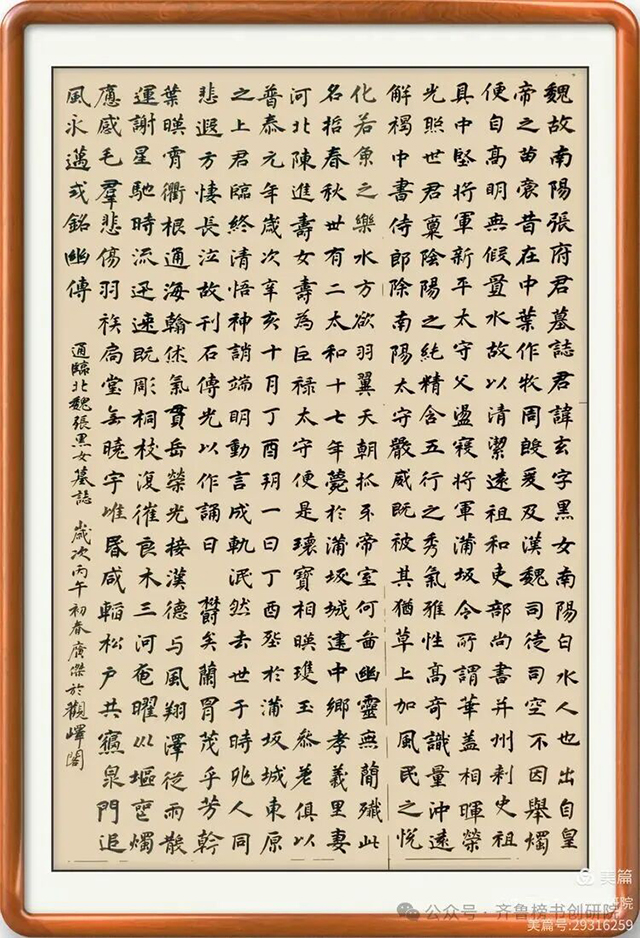 魏故南陽張府君墓誌君諱玄字黑女南陽白水人也出自皇
帝之苗裔昔在中葉作牧周殷爰及漢魏司徒司空不因舉燭
便自高明無假置水故以清潔遠祖和吏部尚書并州刺史祖
具中堅將軍新平太守父盪寇將軍蒲坂令所謂華蓋相暉榮
光照世君稟陰陽之純精含五行之秀氣雅性高奇識量沖遠
解褐中書侍郎除南陽太守嚴威既被其猶草上加風民之悅
化若魚之樂水方欲羽翼天朝抓牙帝室何啚幽靈無簡殲此
名哲春秋卅有二太和十七年薨於蒲坂城建中鄉孝義里妻
河北陳進壽女壽為巨祿太守便是瓌寶相暎瓊玉參差俱以
普泰元年歲次辛亥十月丁酉朔一日丁酉塟於蒲坂城東原
之上君臨終清悟神誚端明動言成軌泯然去世于時兆人同
悲遐方悽長泣故刊石傳光以作誦曰 欝矣蘭冑茂乎芳幹
葉暎霄衢根通海翰休氣貫岳榮光接漢德与風翔澤從雨散
運謝星馳時流迅速既彫桐枝復摧良木三河奄曜巛塸霾燭
應感毛羣悲傷羽族扃堂无曉宇唯昏咸輀松戶共寢泉門追
風永邁式銘幽傳
通臨北魏張黑女墓誌 歲次丙午初春廣傑於觀嶧閣
美篇
公众号·齐鲁榜书创研院
美篇号:29316259